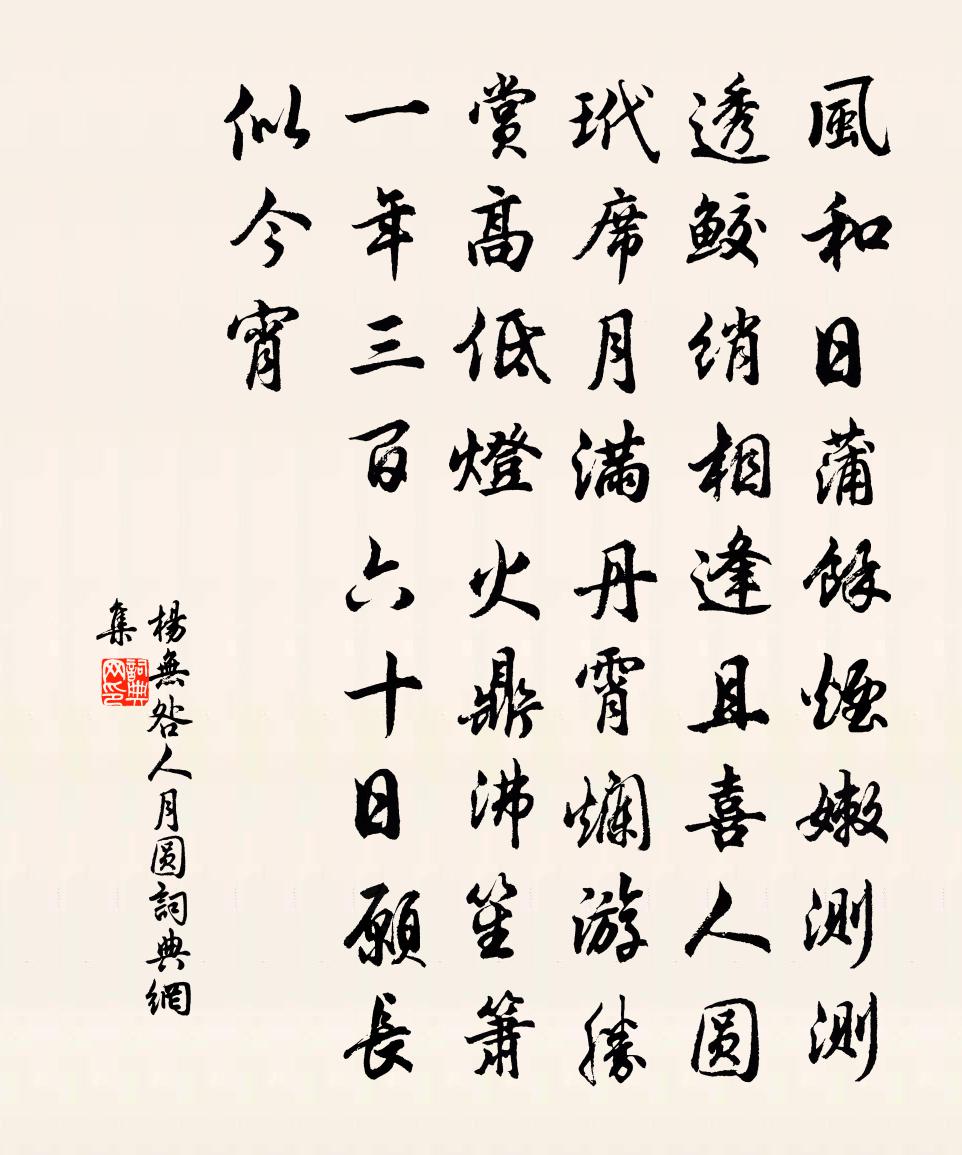 風和日蒲餘煙嫩測測
透鮫綃相逢且喜人圆
玳席月滿丹霄爛游勝
賞高低燈火鼎沸笙簫
一年三百六十日願長
似今宵
楊無咎人月圆詞典網
集
詞典网印